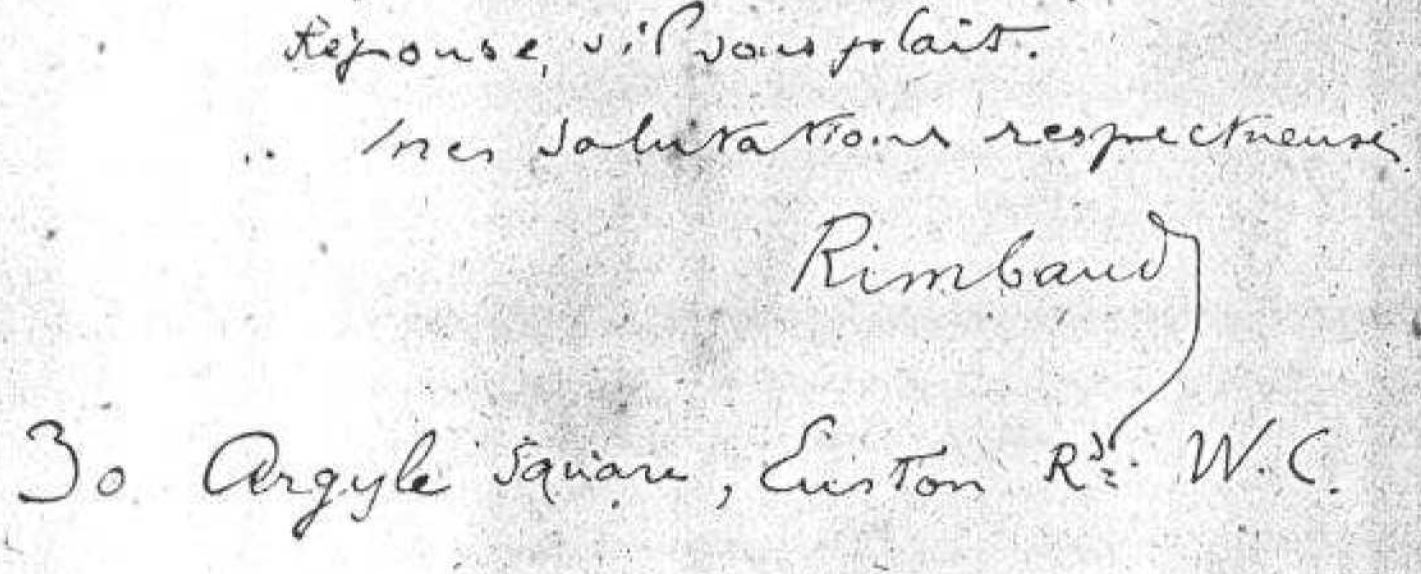 Réponse, s'il vous plait.
Mes salutations respectueuses
Rimbaud
30 Argyle square, Euston Rd. W.C.